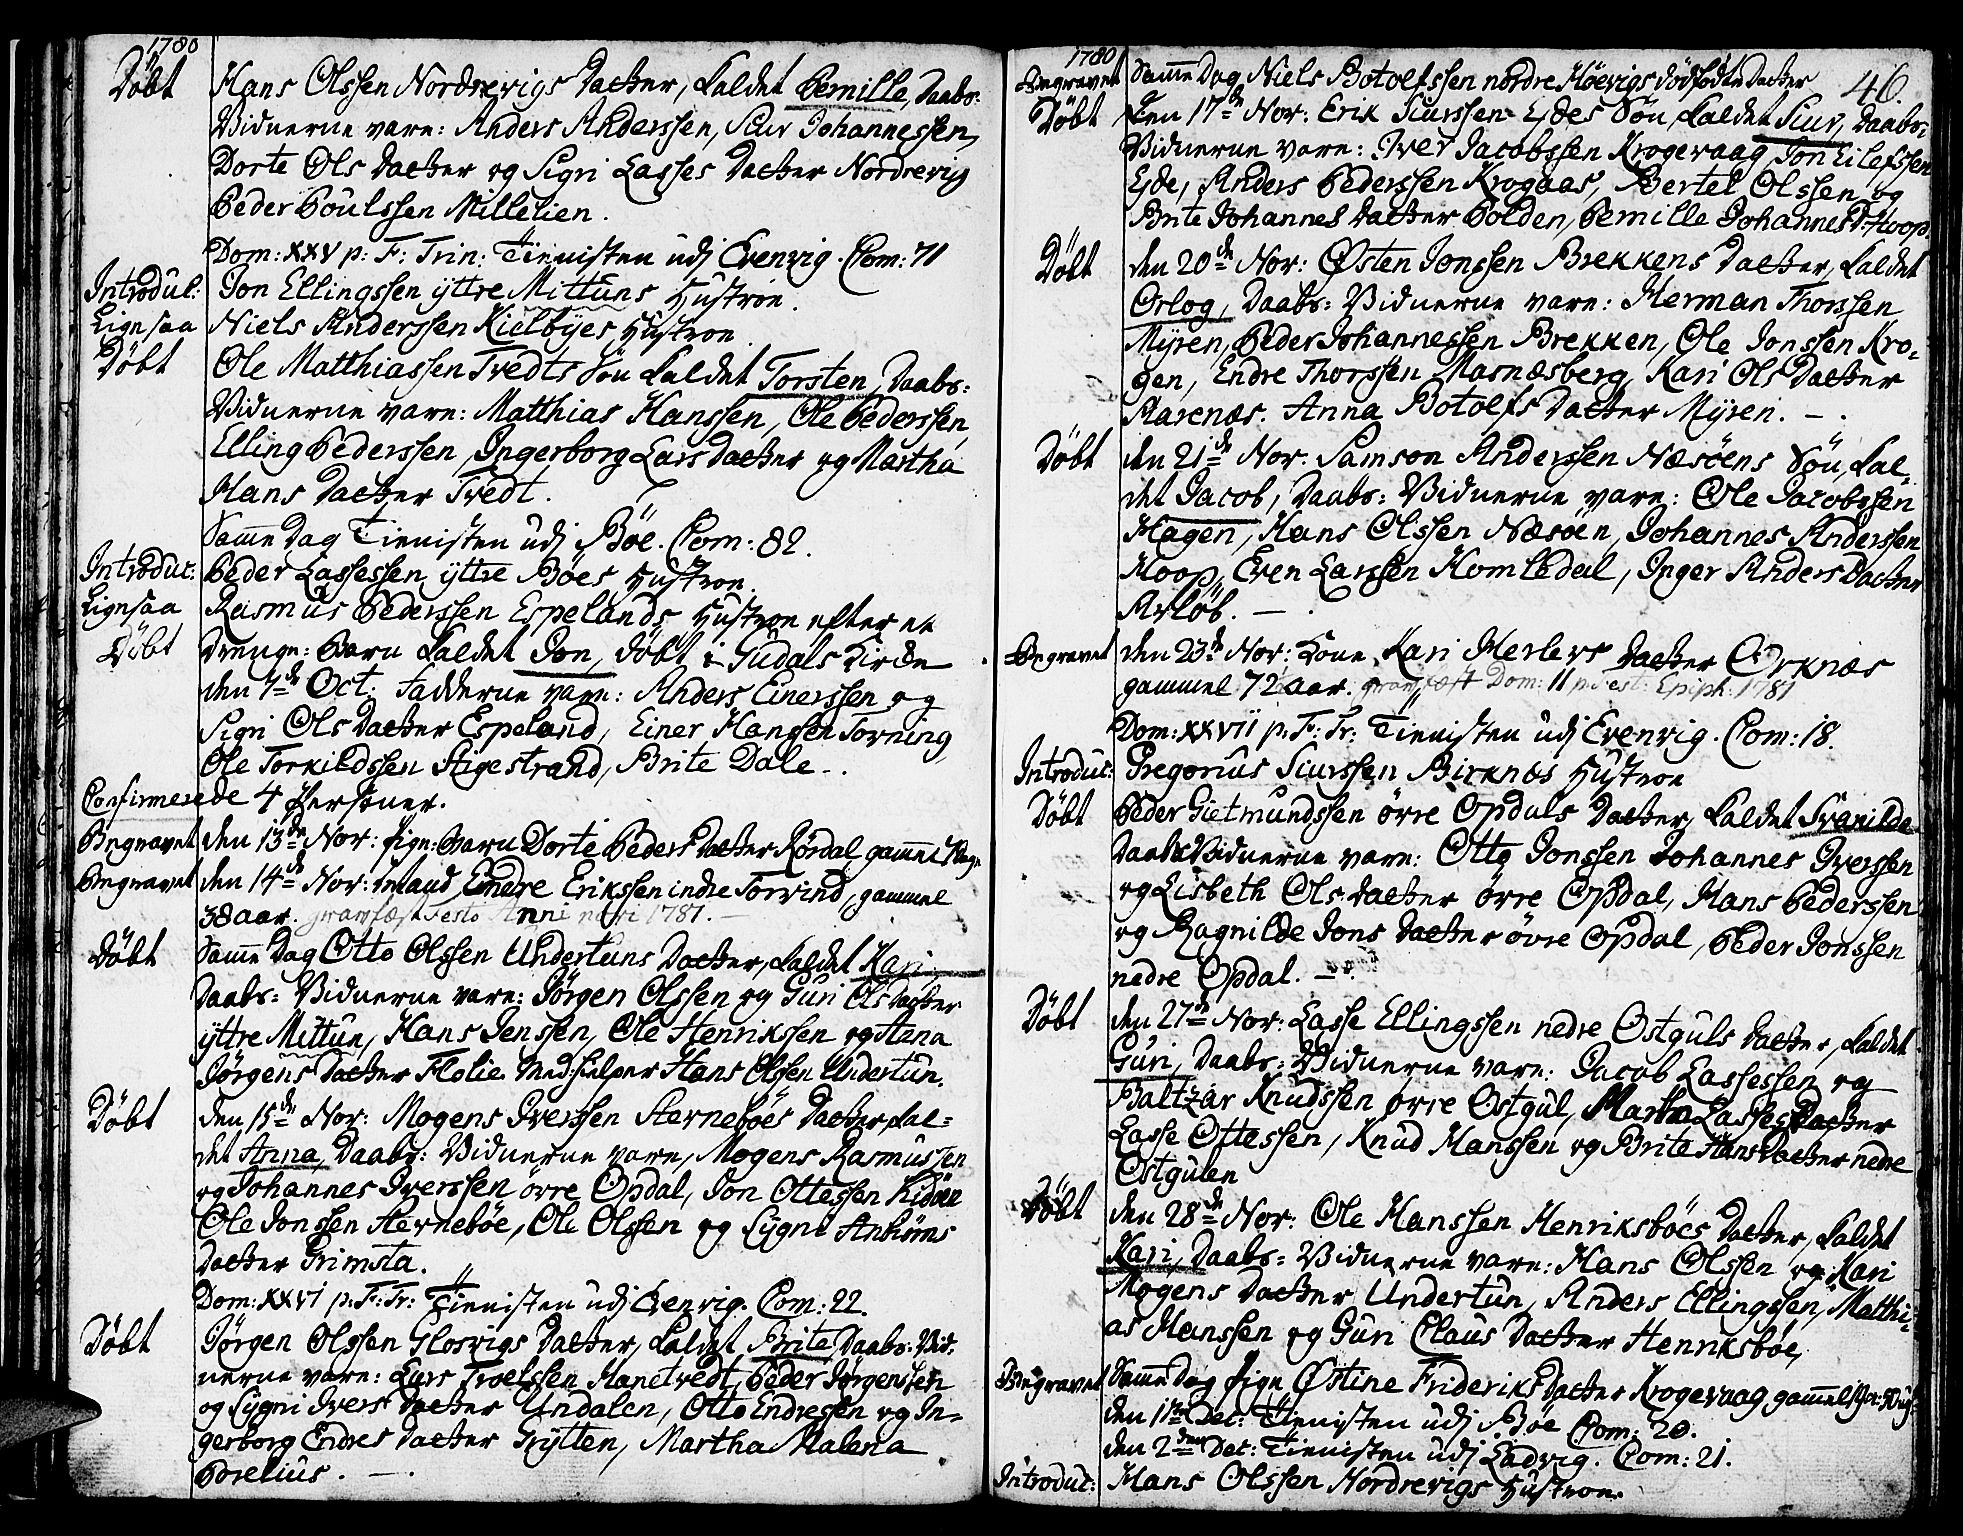 1780
Döbt Hans Olssen Nordrevigs Datter, kaldet Pernille, Daabs-
Vidnerne vare: Anders Anderssen, Siur Johannessen,
Dorte Ols Datter og Sigri Lasses Datter Nordrevig
Peder Poulssen Millelien.
Dom: XXV p: F: Trin: Tienisten udj Evenvig. Com: 71
Introduc: Jon Ellingssen yttre Mittuns Hustroe.
Ligesaa Niels Anderssen Kielbyes Hustroe
Döbt Ole Matthiassen Tvedts Sön kaldet Torsten, Daabs:
Vidnerne vare: Matthias Hanssen, Ole Pederssen,
Elling Pederssen, Ingerborg Lars Datter og Martha
Hans Datter Tvedt.
Samme Dag Tienisten udj Böe. Com: 82.
Introduc: Peder Lassessen yttre Böes Hustroe.
Ligesaa Rasmus Pederssen Espelands Hustroe efter et
Döbt Drenge: Barn kaldet Jon, döbt i Gudals Kircke
den 7de Oct: Fadderne vare: Anders Einerssen og
Sigri Ols Datter Espeland, Einer Hanssen Torning,
Ole Torkildssen Stigestrand, Brite Dale.
Confirmerede 4 Personer.
Begravet den 13de Nor: Pige: Barn Dorte Peders Datter Rördal gammel
Begravet den 14de Nor: Mand Endre Erikssen indre Torvind, gammel
38 aar. gravfæst Festo Anni novi 1781.
Döbt Samme Dag Otto Olssen Undertuns Datter, kaldet Kari,
Daabs: Vidnerne vare: Jörgen Olssen og Guri Ols Datter
yttre Mittun, Hans Jenssen, Ole Henrikssen og Anna
Jörgens Datter Flolie. Medhielper Hans Olssen Undertun.
Döbt den 15de Nor: Mogens Iverssen Sterneböes Datter, kal-
det Anna, Daabs: Vidnerne vare, Mogens Rasmussen
og Johannes Iverssen övre Opdal, Jon Ottessen Kidöen
Ole Jonssen Sternebøe, Ole Olssen og Lygni Anhöms
Datter Grimsta.
Dom: XXVI p: F: Tr: Tienisten udj Evenvig. Com: 22.
Döbt Jörgen Olssen Glosvigs Datter, kaldet Brite, Daabs: Vid-
nerne vare: Lars Troelssen Hanetvedt, Peder Jörgenssen
og Lygni Ivers Datter Undalen, Otto Endressen og In-
gerborg Endres Datter Grytten, Martha Malena
Borelius.
1780
46.
Begravet Samme Dag Niels Botolfssen nordre Höevigs dödfödte Datter
Döbt den 17de Nor: Erik Siurssen Eydes Sön, kaldet Siur, Daabs-
Vidnerne vare: Iver Jacobssen Krogevaag Jon Eilefssen
Eyde, Anders Pederssen Krogaas, Bertel Olssen og
Brite Johannes Datter Polden, Pernille Johannes D: Hoop.
Döbt den 20de Nor: Østen Jonssen Brekkens Datter, kaldet
Orlog, Daabs: Vidnerne vare: Herman Thorssen
Myren, Peder Johannessen Brekken, Ole Jonssen Kro-
gen, Endre Thorssen Masnæsberg, Kari Ols Datter
Aarenæs. Anna Botolfs Datter Myren.
Döbt den 21de Nor. Samson Anderssen Næsöens Sön, kal-
det Jacob, Daabs: Vidnerne vare: Ole Jacobssen
Hagen, Hans Olssen Næsöen, Johannes Anderssen
Hoop, Even Larssen Homledal, Inger Anders Datter
Avlöb.
Begravet den 23de Nor: Kone Kari Herlers Datter Ørknæs
gammel 72 aar. gravfæst Dom: II p: Fest: Epiph: 1781
Dom: XXVII p: F: Tr: Tienisten udj Evenvig. Com: 18.
Introduc: Gregorius Siurssen Birknæs Hustroe
Döbt Peder Gietmundssen övre Opdals Datter, kaldet Svanilde
Daabs Vidnerne vare: Otto Jonssen Johannes Iverssen
og Lisbeth Ols Datter övre Opdal, Hans Pederssen
og Ragnilde Jons Datter övre Opdal, Peder Jonssen
nedre Opdal.
Döbt den 27de Nor: Lasse Ellingssen nedre Østguls Datter, kaldet
Guri, Daabs: Vidnerne vare: Jacob Lassessen og
Baltzar Knudssen övre Østgul, Marta Lasses Datter
Lasse Oftessen, Knud Hanssen og Brite Hans Datter nedre
Østgulen
Döbt den 28de Nor: Ole Hanssen Henriksböes Datter, kaldet
Kari, Daabs: Vidnerne vare: Hans Olssen og Kari
Mogens Datter Undertun, Anders Ellingssen, Matthi-
as Hanssen og Guri Claus Datter Henriksböe,
Begravet Samme Dag Pige Østine Frideriks Datter Krogevaag gammel
den 1ste Dec: Tienisten udj Böe Com: 20.
den 2den Dec: Tienisten udj Ladvig. Com: 21.
Introduc: Hans Olssen Nordrevigs Hustroe.